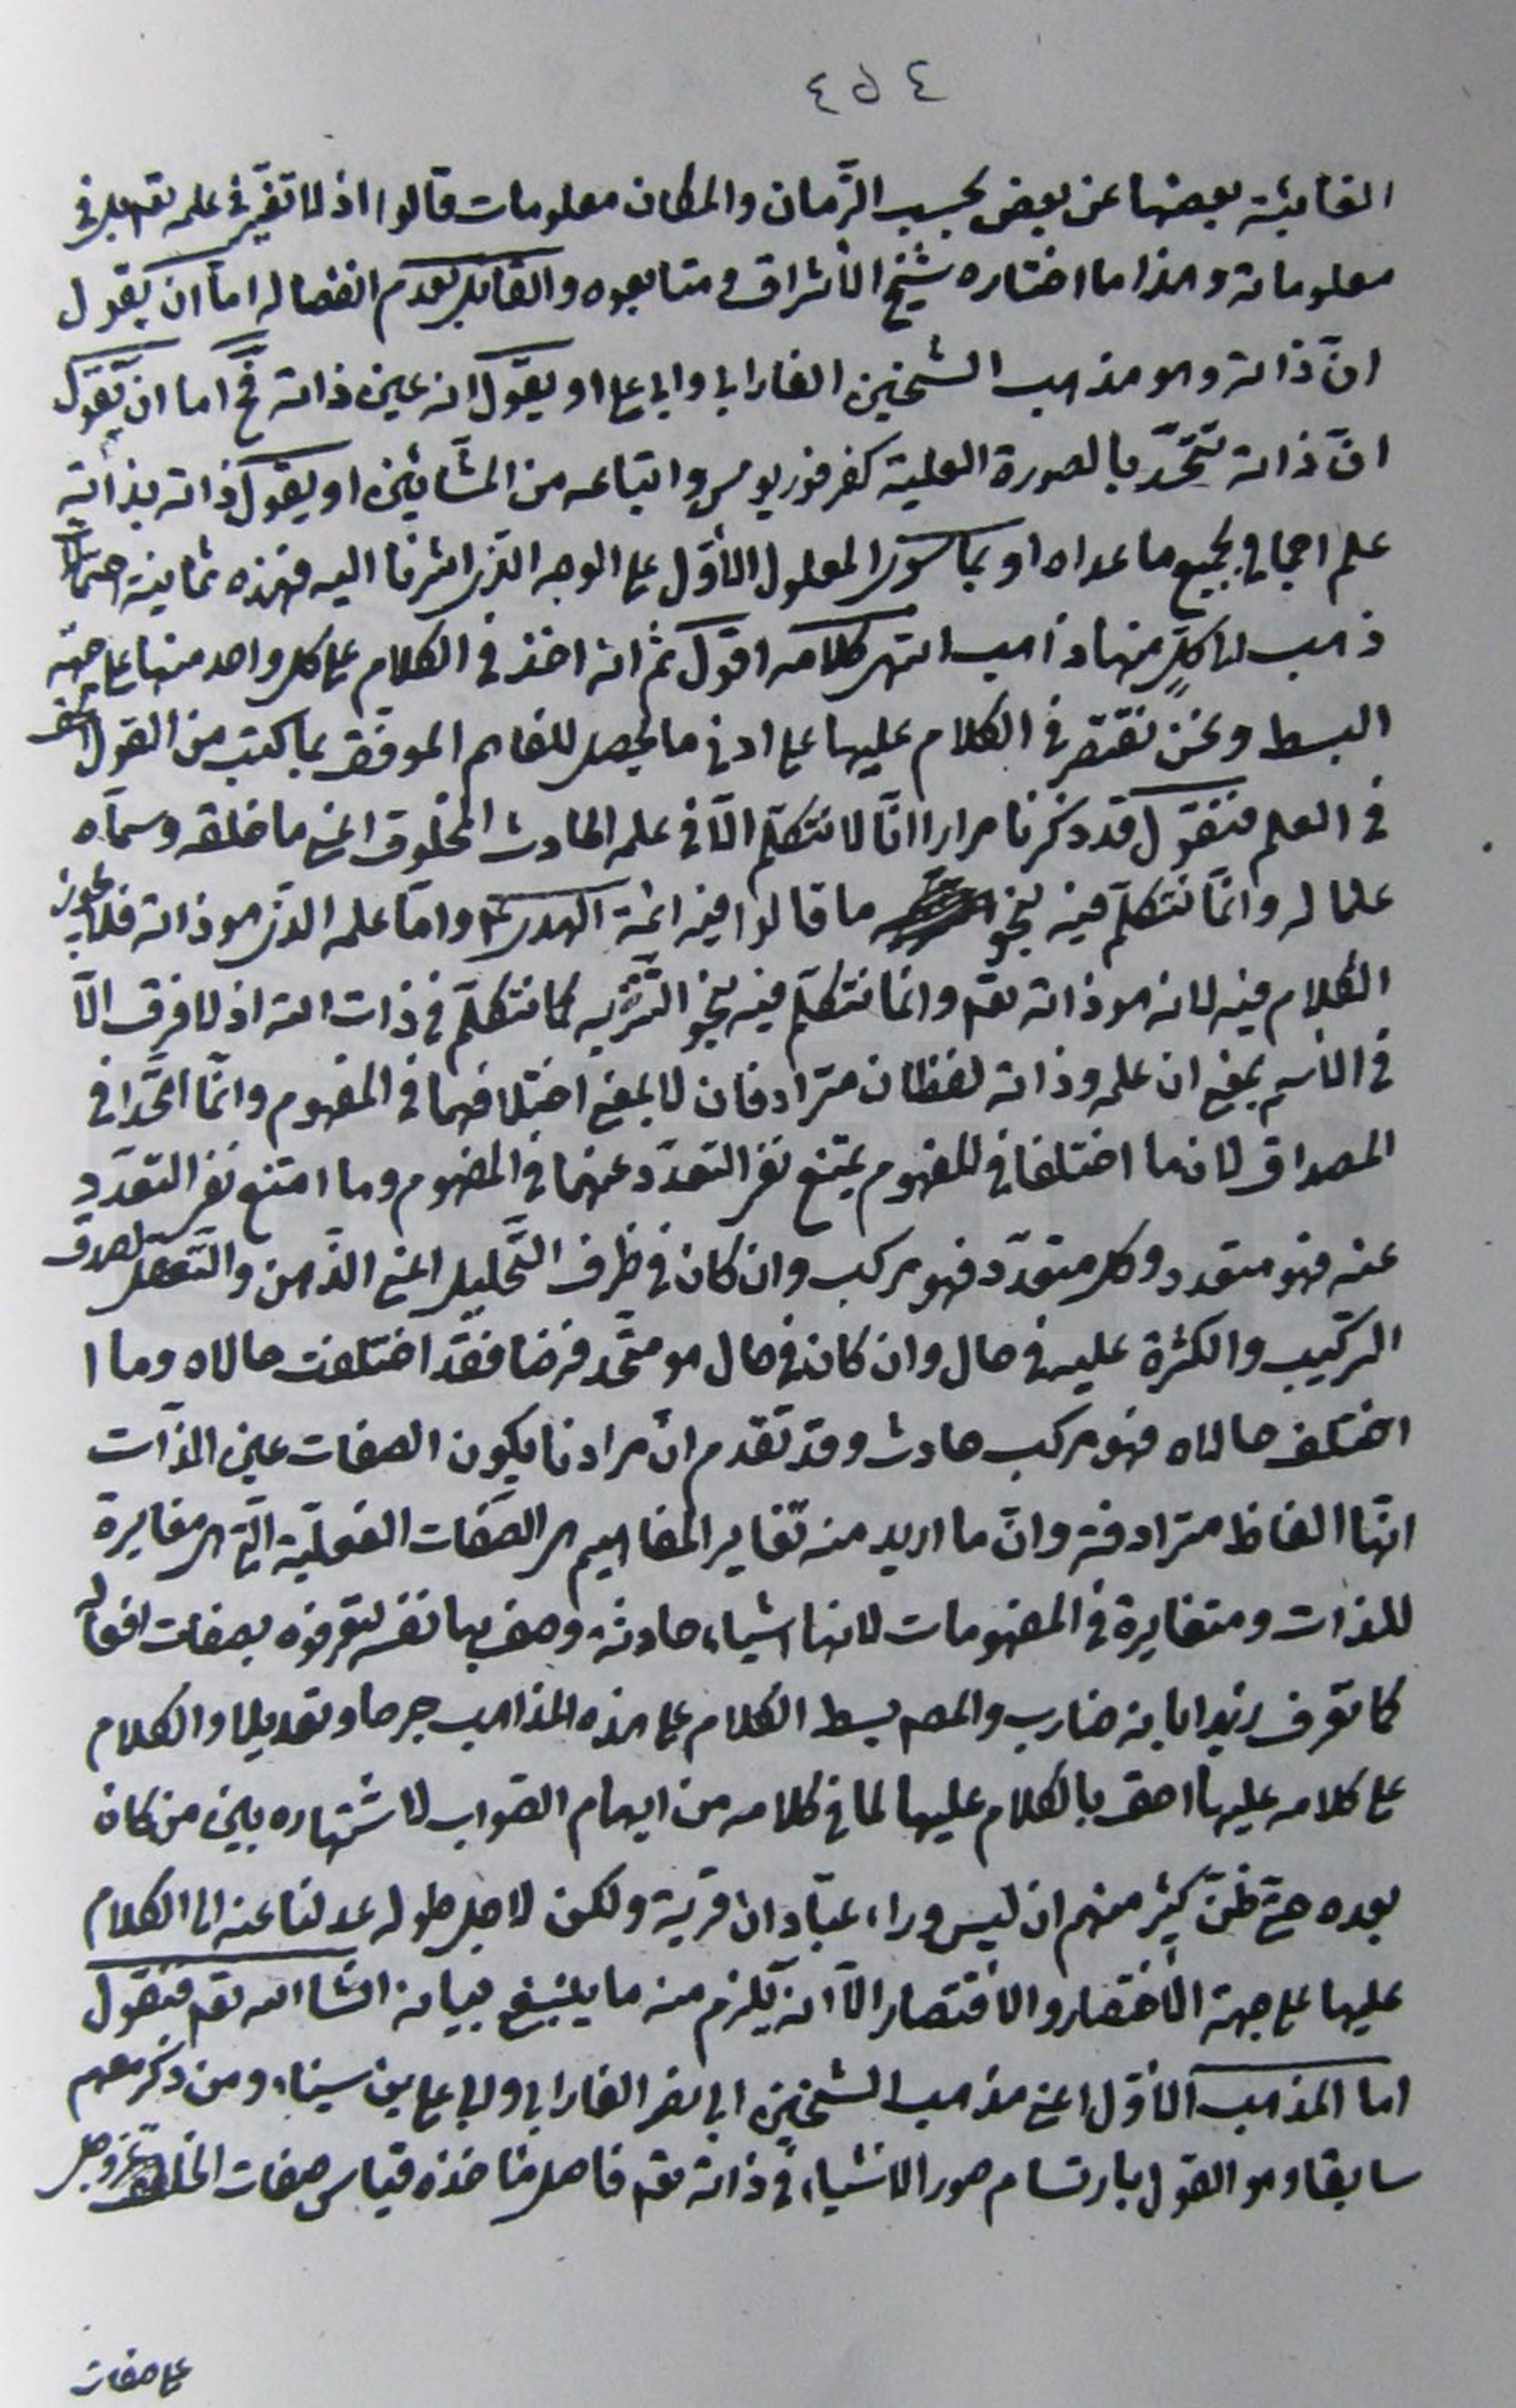 ٤٥٤
الغائبة بعضها عن بعض بحسب الزمان والمكان معلومات قالوا اذ لا تغيّر في علمه تعم بل في
معلوماته وهذا ما اختاره شيخ الأشراق و متابعوه والقائل بعدم انفصاله اما ان يقول
انّ ذاته وهو مذهب الشيخين الفارابى وابى على او يقول انه عين ذاته فح اما ان يقول
انّ ذاته تتّحد بالصورة العلمية كفرفوريوس واتباعه من المشّائين او يقول ذاته بذاته
علم اجمالى بجميع ما عداه او بما سوى المعلول الأوّل على الوجه الذى اشرنا اليه فهذه ثمانية احتمالات
ذهب لى كلٍ منها ذاهب انتهى كلامه اقول ثم انه اخذ في الكلام على كل واحد منها على جهة
البسط ونحن نقتصر في الكلام عليها على ادنى ما يحصل للفاهم الموفق بما كتب من القول الحق
في العلم فنقول قد ذكرنا مرارا انّا لا نتكلّم الّا في علمه الحادث المخلوق اعنى ما خلقه وسمّاه
علما له وانّما نتكلّم فيه بنحو ما قالوا فيه ائمة الهدى ع واما علمه الذى هو ذاته فلا يجوز
الكلام فيه لانه هو ذاته تعم وانما نتكلّم فيه بنحو التنزيه كما نتكلّم في ذات الله اذ لا فرق الّا
في الاسم بمعنى ان علمه وذاته لفظان مترادفان لا بمعنى اختلافهما في المفهوم وانّما اتّحدا في
المصداق لان ما اختلفا في المفهوم يمتنع نفى التعدّد عنهما في المفهوم وما امتنع نفى التعدّد
عنه فهو متعدد وكل متعدّد فهو مركب وان كان في ظرف التّحليل اعنى الذّهن والتّعقل لصدق
التركيب والكثرة عليه في حال وان كان في حال هو متّحد فرضا فقد اختلفت حالاه وما ا
اختلف حالاه فهو مركب حادث وقد تقدم انّ مرادنا بكون الصفات عين الذّات
انّها الفاظ مترادفة وانّ ما اريد منه تغاير المفاهيم هى الصّفات الفعليّة الّتى هى مغايرة
للذات ومتغايرة في المفهومات لانها اشياء حادثة وصف بها نفسه لتعرفوه بصفات افعاله
كما تعرف زيدا بانه ضارب والمصم بسط الكلام على هذه المذاهب جرحا وتعديلا والكلام
على كلامه عليها احق بالكلام عليها لما في كلامه من ايهام الصّواب لاشتهاره بين من كان
بعده حتّى ظنّ كثير منهم ان ليس وراء عبّادان قرية ولكن لاجل طوله عدلنا عنه الى الكلام
عليها على جهة الأختصار والاقتصار الّا انه يلزم منه ما ينبغى بيانه انشاالله تعم فنقول
اما المذهب الأوّل اعنى مذهب الشيخين ابى نصر الفارابى وابى على بن سيناء ومن ذكر معهم
سابقا وهو القول بارتسام صور الاشياء في ذاته تعم فاصل مأخذه قياس صفات الخالق عزّ وجل
على صفات